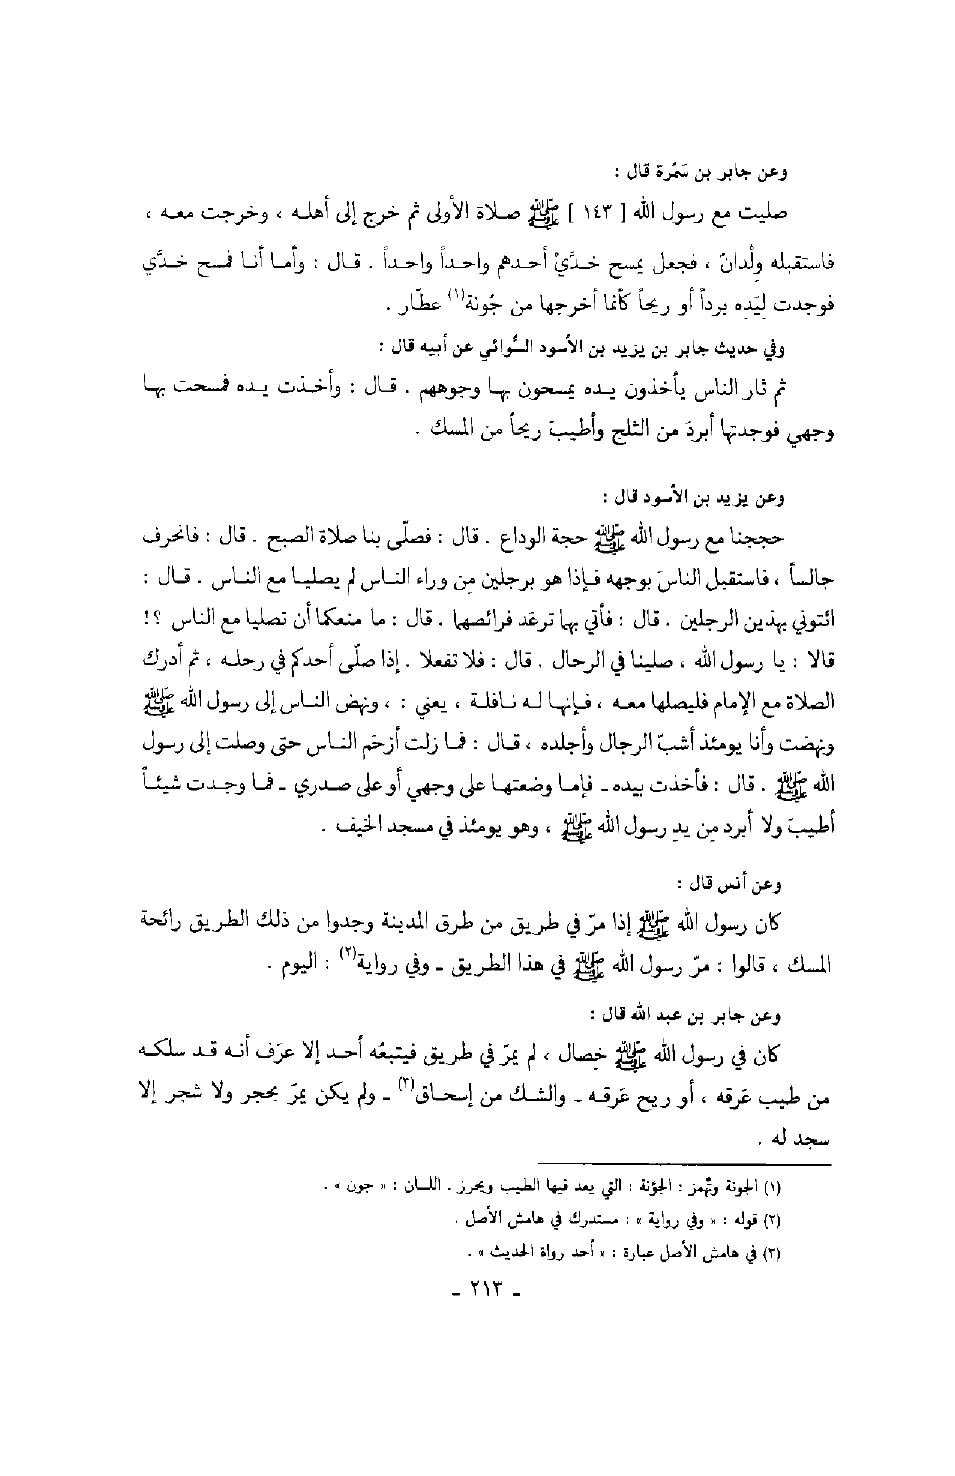 وعن جابر بن سَمُرة قال :
صليت مع رسول الله [ ١٤٣ ] ﷺ صلاة الأولى ثم خرج إلى أهله ، وخرجت معه ،
فاستقبله ولْدانٌ ، فجعل يمسح خدَّيْ أحدهم واحداً واحداً . قال : وأما أنا فمسح خدَّي
فوجدت لِيَده برداً أو ريحاً كأنما أخرجها من جُونة(١) عطّار .
وفي حديث جابر بن يزيد بن الأسود السُّوائي عن أبيه قال :
ثم ثار الناس يأخذون يده يمسحون بها وجوههم . قال : وأخذت يده فمسحت بها
وجهي فوجدتها أبردَ من الثلج وأطيبَ ريحاً من المسك .
وعن يزيد بن الأسود قال :
حججنا مع رسول الله ﷺ حجة الوداع . قال : فصلّى بنا صلاة الصبح . قال : فانحرف
جالساً ، فاستقبل الناسَ بوجهه فإذا هو برجلين مِن وراء الناس لم يصليا مع الناس . قال :
ائتوني بهذين الرجلين . قال : فأُتي بها ترعَد فرائصها . قال : ما منعكما أن تصليا مع الناس ؟!
قالا : يا رسول الله ، صلينا في الرحال . قال : فلا تفعلا . إذا صلّى أحدكم في رحله ، ثم أدرك
الصلاة مع الإمام فليصلها معه ، فإنها له نافلة ، يعني : ، ونهض الناس إلى رسول الله ﷺ
ونهضت وأنا يومئذ أشبّ الرجال وأجلده ، قال : فما زلت أزحَم الناس حتى وصلت إلى رسول
الله ﷺ . قال : فأخذت بيده ـ فإما وضعتها على وجهي أو على صدري ـ فما وجدت شيئاً
أطيبَ ولا أبرد مِن يدِ رسول الله ﷺ ، وهو يومئذ في مسجد الخيف .
وعن أنس قال :
كان رسول الله ﷺ إذا مرّ في طريق من طرق المدينة وجدوا من ذلك الطريق رائحة
المسك ، قالوا : مرّ رسول الله ﷺ في هذا الطريق ـ وفي رواية(٢) : اليوم .
وعن جابر بن عبد الله قال :
كان في رسول الله ﷺ خصال ، لم يمرّ في طريق فيتبعُه أحد إلا عرَف أنه قد سلكه
من طيب عَرقه ، أو ريح عَرقه ـ والشك من إسحاق(٣) ـ ولم يكن يمرّ بحجر ولا شجر إلا
سجد له .
(١) الجونة وتُهمز : الجؤنة : التي يعد فيها الطيب ويحرز . اللسان : « جون » .
(٢) قوله : « وفي رواية » : مستدرك في هامش الأصل .
(٣) في هامش الأصل عبارة : « أحد رواة الحديث » .
ـ ٢١٣ ـ